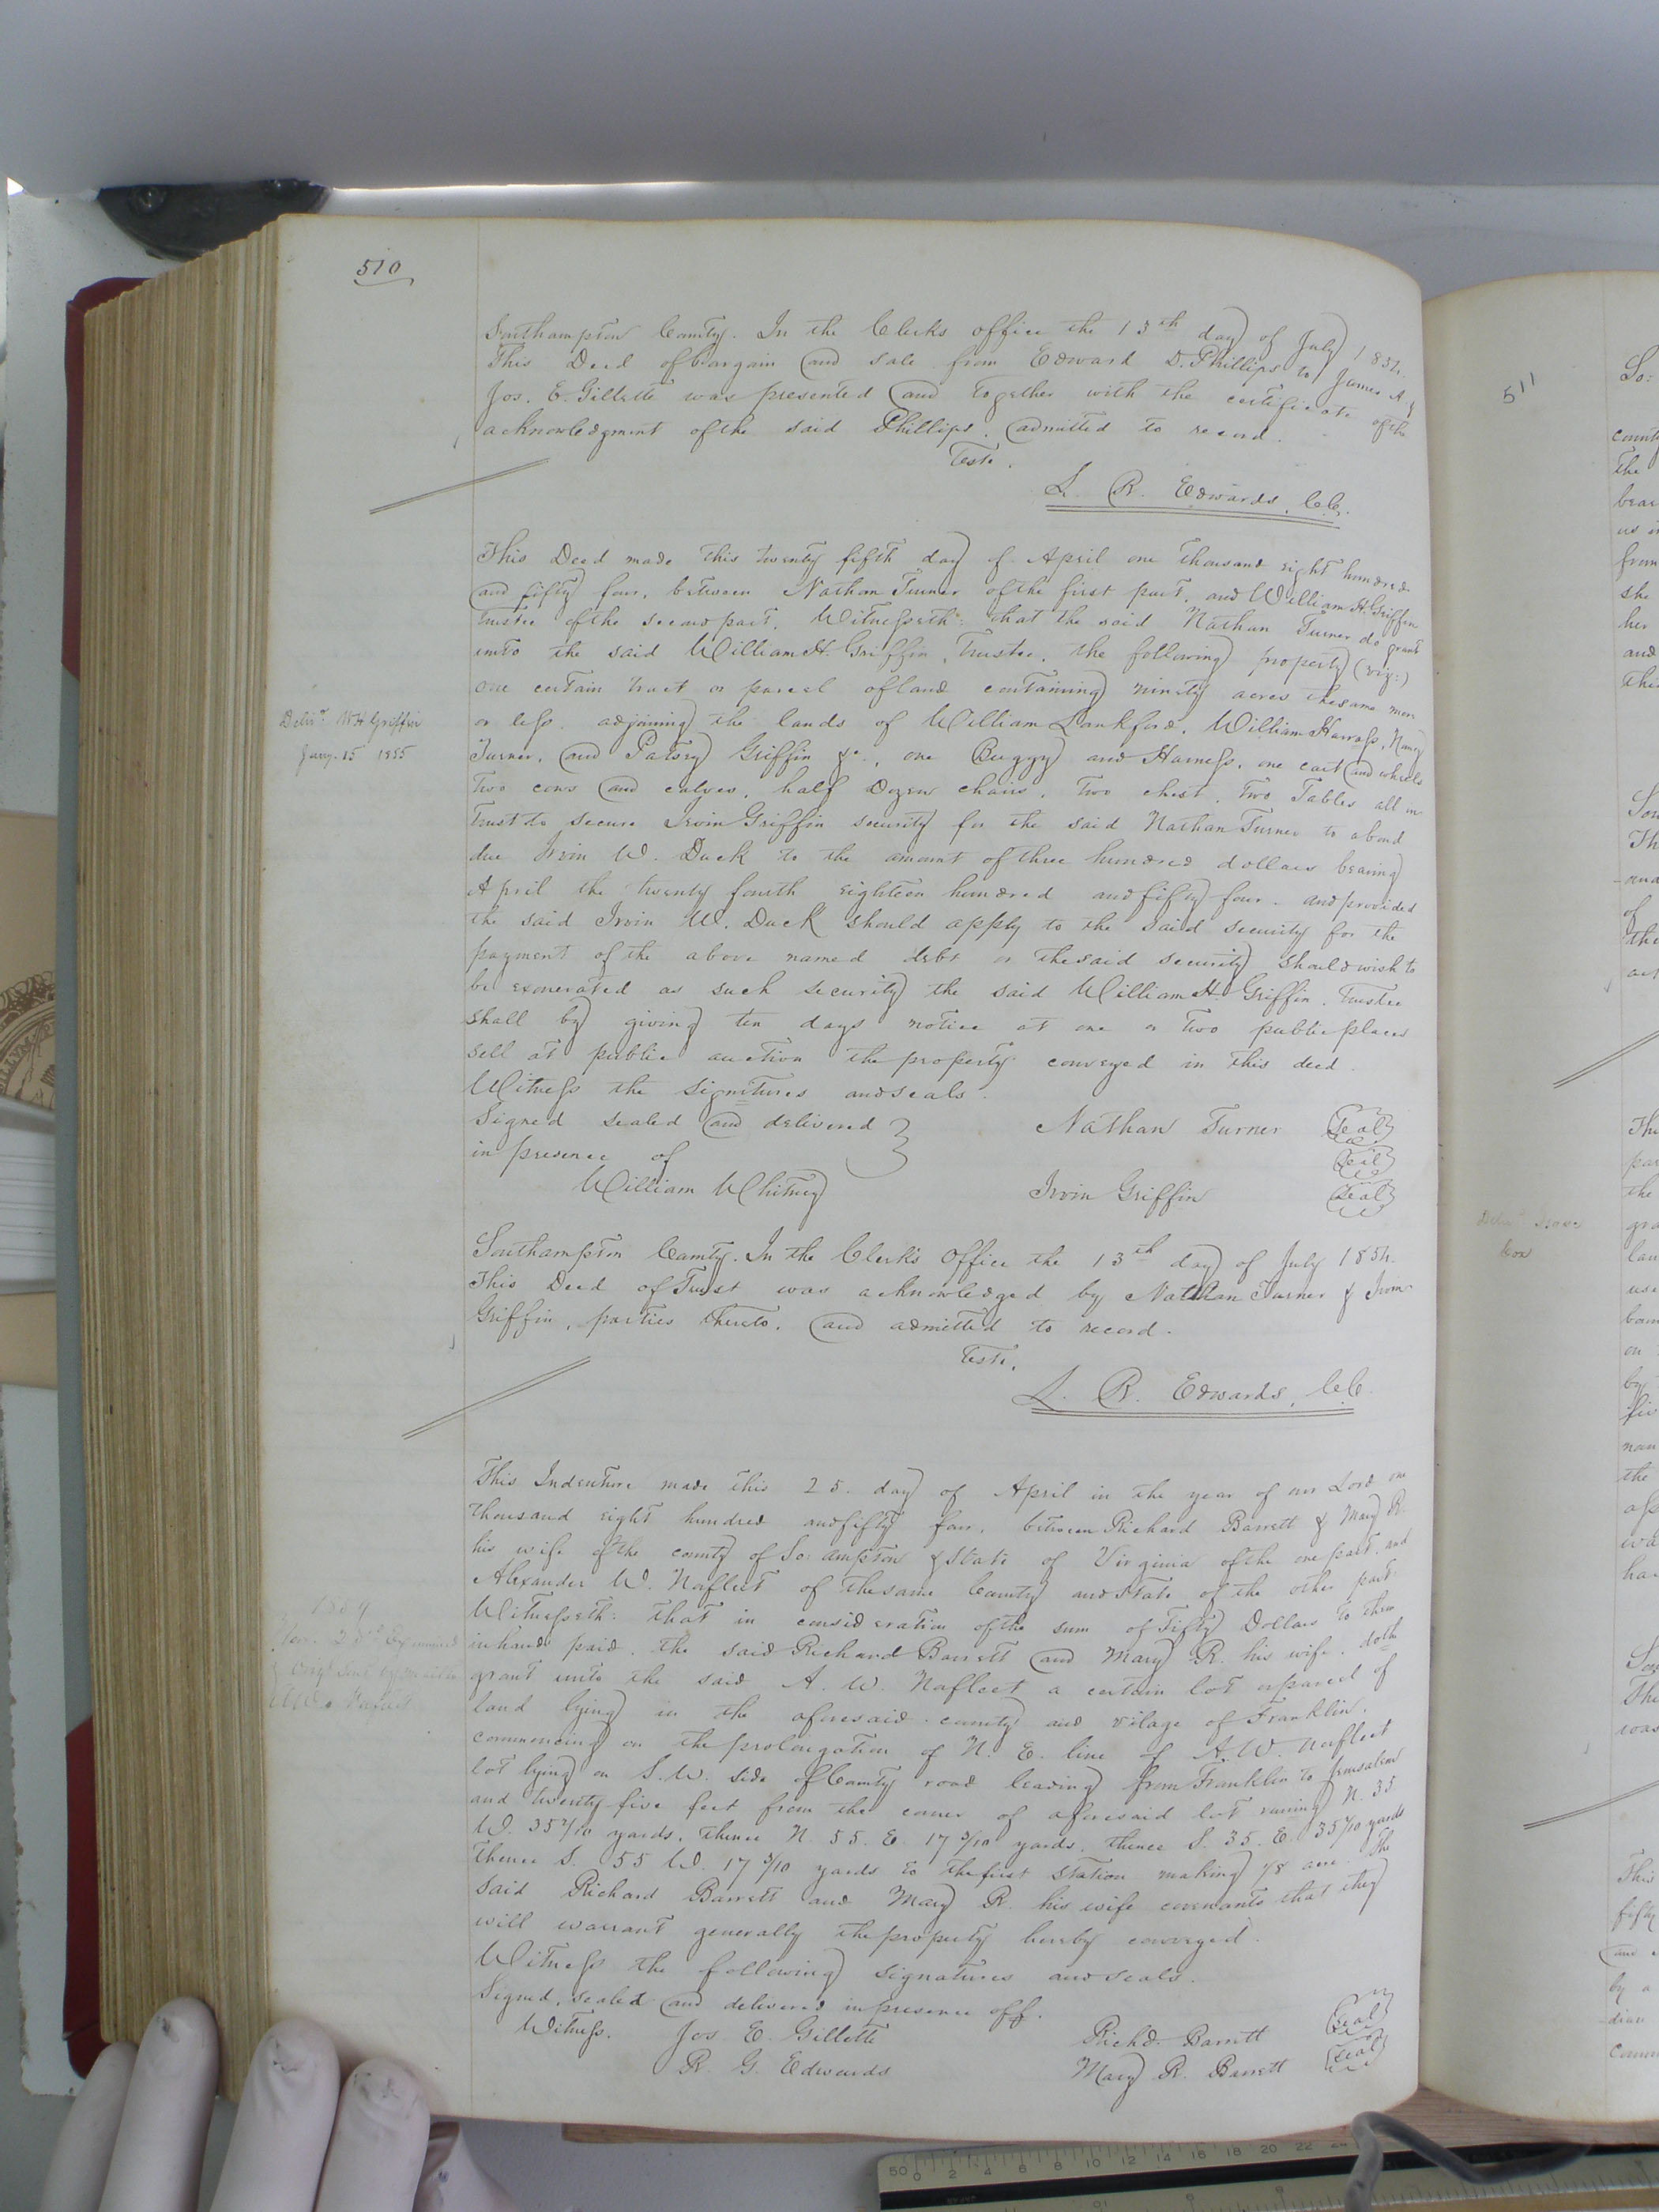 510
Southampton County. In the Clerks office the 13th day of July 1854.
This Deed of bargain and sale from Edward D. Phillips to James A. &
Jos. E. Gillette was presented and together with the certificate of the
acknowledgment of the said Phillips, admitted to record.
Teste.
L. R. Edwards, C.C.
This Deed made this twenty fifth day of April one thousand eight hundred
and fifty four, between Nathan Turner of the first part, and William H. Griffin
trustee of the second part, Witnesseth: that the said Nathan Turner do grant
unto the said William H. Griffin, Trustee, the following property (viz:)
one certain tract or parcel of land containing ninety acres the same more
or less adjoining the lands of William Lankford, William Harrass, Nancy
Turner, and Patsey Griffin &c., one Buggy and Harness, one cart and wheels
Two cows and calves, half Dozen chairs, two chest, two Tables all in
Trust to secure Irvin Griffin security for the said Nathan Turner to a bond
due Irvin W. Duck to the amount of three hundred dollars bearing
April the twenty fourth eighteen hundred and fifty four. and provided
the said Irvin W. Duck should apply to the said security for the
payment of the above named debt or the said security should wish to
be exonerated as such security the said William H. Griffin, Trustee
shall by giving ten days notice at one or two public places
sell at public auction the property conveyed in this deed.
Witness the signitures and seals.
Signed sealed and delivered
in presence of
Nathan Turner Seal
Seal
William Whitney Irvin Griffin Seal
Southampton County. In the Clerk's Office the 13th day of July 1854.
This Deed of Trust was acknowledged by Nathan Turner & Irvin
Griffin, parties thereto, and admitted to record.
Teste,
L. R. Edwards, C.C.
This Indenture made this 25. day of April in the year of our Lord one
thousand eight hundred and fifty four, between Richard Barrett & Mary R.
his wife of the county of So: ampton & State of Virginia of the one part, and
Alexander W. Norfleet of the same County and State of the other part.
Witnesseth: that in consideration of the sum of Fifty Dollars to them
in hand paid, the said Richard Barrett and Mary R. his wife, doth
grant unto the said A. W. Norfleet a certain lot or parcel of
land lying in the aforesaid county and vilage of Franklin.
commencing on the prolongation of N. E. line of A. W. Norfleet
lot lying on S. W. side of County road leading from Franklin to Jerusalem
and twenty five feet from the corner of aforesaid lot runing N. 35
W. 35 yards, thence N. 55. E. 17 3/10 yards, thence S. 35. E. 35 yards
thence S. 55 W. 17 3/10 yards to the first station making 1/8 acre. The
said Richard Barrett and Mary R. his wife covenants that they
will warrant generally the property hereby conveyed.
Witness the following signatures and seals.
Signed, sealed and delivered in presence off.
Witness. Jos. E. Gillette Richd. Barrett Seal
R. G. Edwards Mary R. Barrett Seal
Delivd. W H Griffin
Jany. 15 1855
1859
511